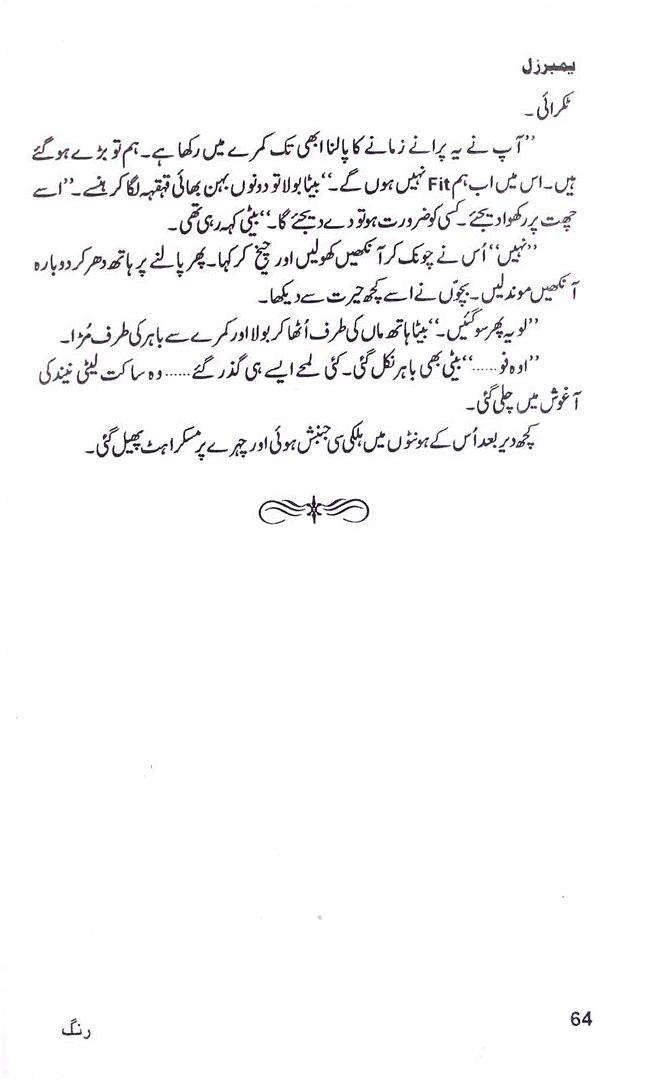 یمبرزل
ٹکرائی۔
”آپ نے یہ پرانے زمانے کا پالنا ابھی تک کمرے میں رکھا ہے۔ ہم تو بڑے ہو گئے
ہیں۔ اس میں اب ہم Fit نہیں ہوں گے۔“ بیٹا بولا تو دونوں بہن بھائی قہقہہ لگا کر ہنسے۔ ”اسے
چھت پر رکھوا دیجئے۔ کسی کو ضرورت ہو تو دے دیجئے گا۔“ بیٹی کہہ رہی تھی۔
”نہیں“ اُس نے چونک کر آنکھیں کھولیں اور چیخ کر کہا۔ پھر پالنے پر ہاتھ دھر کر دوبارہ
آنکھیں موند لیں۔ بچوّں نے اسے کچھ حیرت سے دیکھا۔
”لو یہ پھر سو گئیں۔“ بیٹا ہاتھ ماں کی طرف اُٹھا کر بولا اور کمرے سے باہر کی طرف مُڑا۔
”اوہ نو......“ بیٹی بھی باہر نکل گئی۔ کئی لمحے ایسے ہی گذر گئے...... وہ ساکت لیٹی نیند کی
آغوش میں چلی گئی۔
کچھ دیر بعد اُس کے ہونٹوں میں ہلکی سی جنبش ہوئی اور چہرے پر مسکراہٹ پھیل گئی۔
64
رنگ